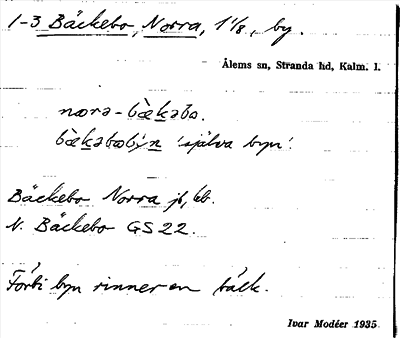 1-3 Bäckebo, Norra, 1 1/8, by.
Ålems sn, Stranda hd, Kalm. l.
nɷrə-bæ̀kəbo.
bæ̀kəbobýn 'själva byn'.
Bäckebo Norra jb,
N. Bäckebo GS 22.
Förbi byn rinner en bäck.
Ivar Modéer 1935.